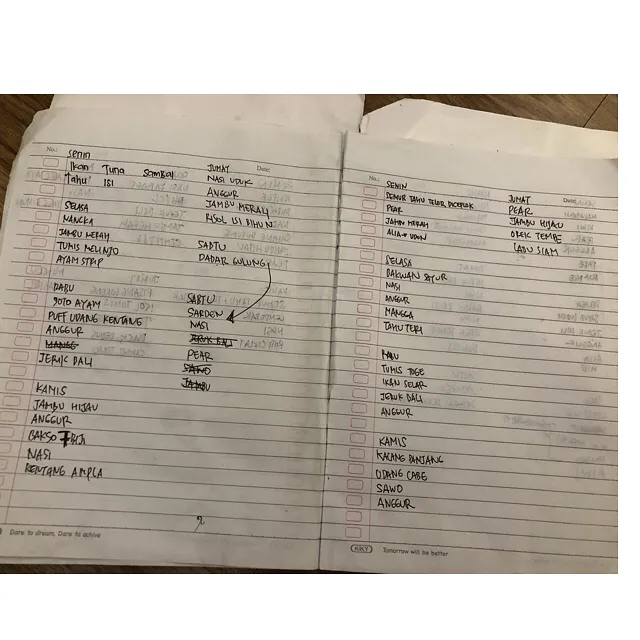 No.:
Date:
Senin
Ikan Tuna Sambal
Tahu ISI
SELASA
NANGKA
JAMBU MERAH
TUMIS MELINJO
AYAM STRIP
RABU
SOTO AYAM
PUFF UDANG KENTANG
ANGGUR
JERUK BALI
KAMIS
JAMBU HIJAU
ANGGUR
BAKSO 7 BIJI
NASI
KENTANG AMPLA
JUMAT
NASI UDUK
ANGGUR
JAMBU MERAH
RISOL ISI BIHUN
SABTU
DADAR GULUNG
SABTU
SARDEN
NASI
JERUK BALI
PEAR
SAWO
JAMBU
Dare to dream, Dare to achive
No.:
Date:
SENIN
TAHU TELOR
PEAR
JAMBU MERAH
UDIN
SELASA
BAKWAN SAYUR
NASI
ANGGUR
MANGGA
TAHU TERI
RABU
TUMIS TOGE
IKAN SELAR
JERUK BALI
ANGGUR
KAMIS
KACANG PANJANG
UDANG CABE
SAWO
ANGGUR
JUMAT
PEAR
JAMBU HIJAU
OREK TEMPE
LABU SIAM
KIKY
Tomorrow will be better